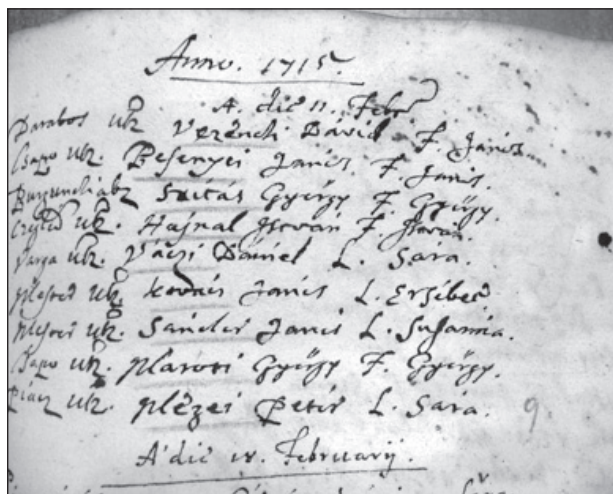 Anno. 1715.
A. die 11. Febr
Darabos utz Verénchi Dávid F. Janos
Csapo utz. Besenyei Janos F. Janos.
Burgundia utz Szitás György F. György.
Czegled utz. Hajnal Istvan F. Istvan.
Varga utz. Váczi Dániel L. Sára.
Mester utz. Kovács Janos L. Ersibet
Mester utz. Sándor Janos L. Susanna.
Csapo utz. Maroti György F. György.
Piacz utz. Mézei Peter L. Sara. 9
A die 18. Februarij.